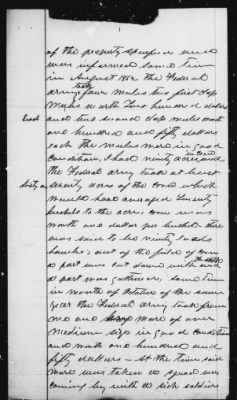 of the property and
was informed some time
in August 1862 the Federal
army took four mules two first class
mules worth Two hundred dollars
Each and two second class mules worth
one hundred and fifty dollars
each the mules were in good
condition, I had ninety acres in corn and
the Federal army took at least
Sixty seventy acres of the corn which
would have averaged Twenty
bushels to the acre, corn was
worth one dollar per bushel. There
was said to be ninety loads
hauled out of the field of corn
a part was cut down and
a part was gathered, some time
in month of October of the same
year the Federal army took from
me one mare of over
medium size in good condition
and worth one hundred and
fifty dollars - At the time said
mare was taken a squad was
coming by with a sick soldier